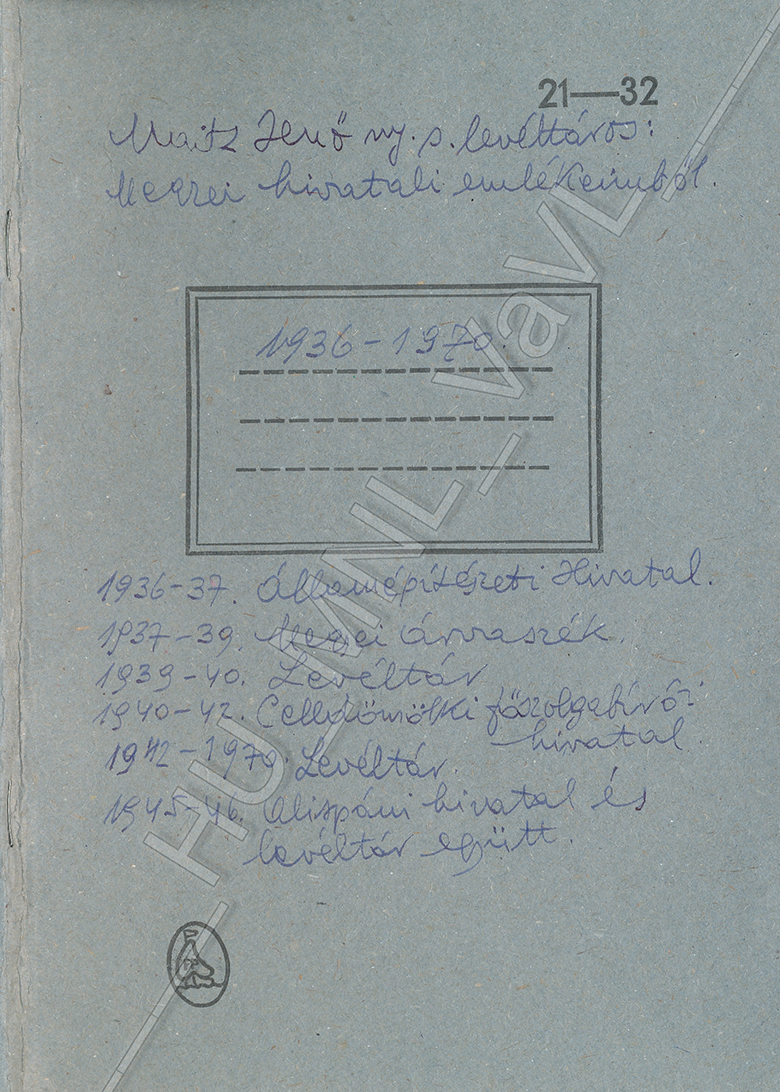 21—32
Maitz Jenő ny. s. levéltáros:
Megyei hivatali emlékeimből.
1936-1970.
1936-37. Államépítészeti Hivatal.
1937-39. Megyei árvaszék.
1939-40. Levéltár
1940-42. Celldömölki főszolgabírói
hivatal.
1942-1970. Levéltár.
1945-46. Alispáni hivatal és
levéltár együtt.
HU_MNL_VaVL